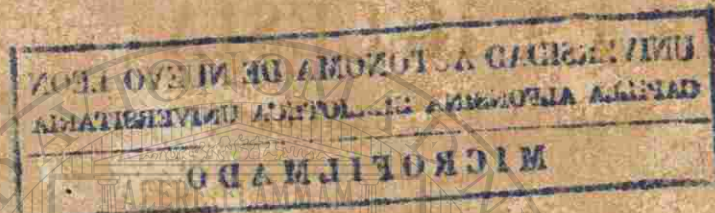 UNIVERSIDAD AUTONOMA DE NUEVO LEON
CAPILLA ALFONSINA BIBLIOTECA UNIVERSITARIA
MICROFILMADO